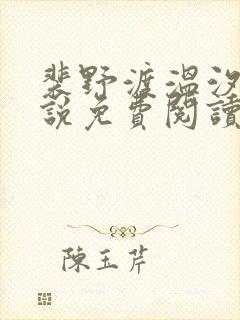 裴野渡溫汐
說免費閱讀
陳玉芹